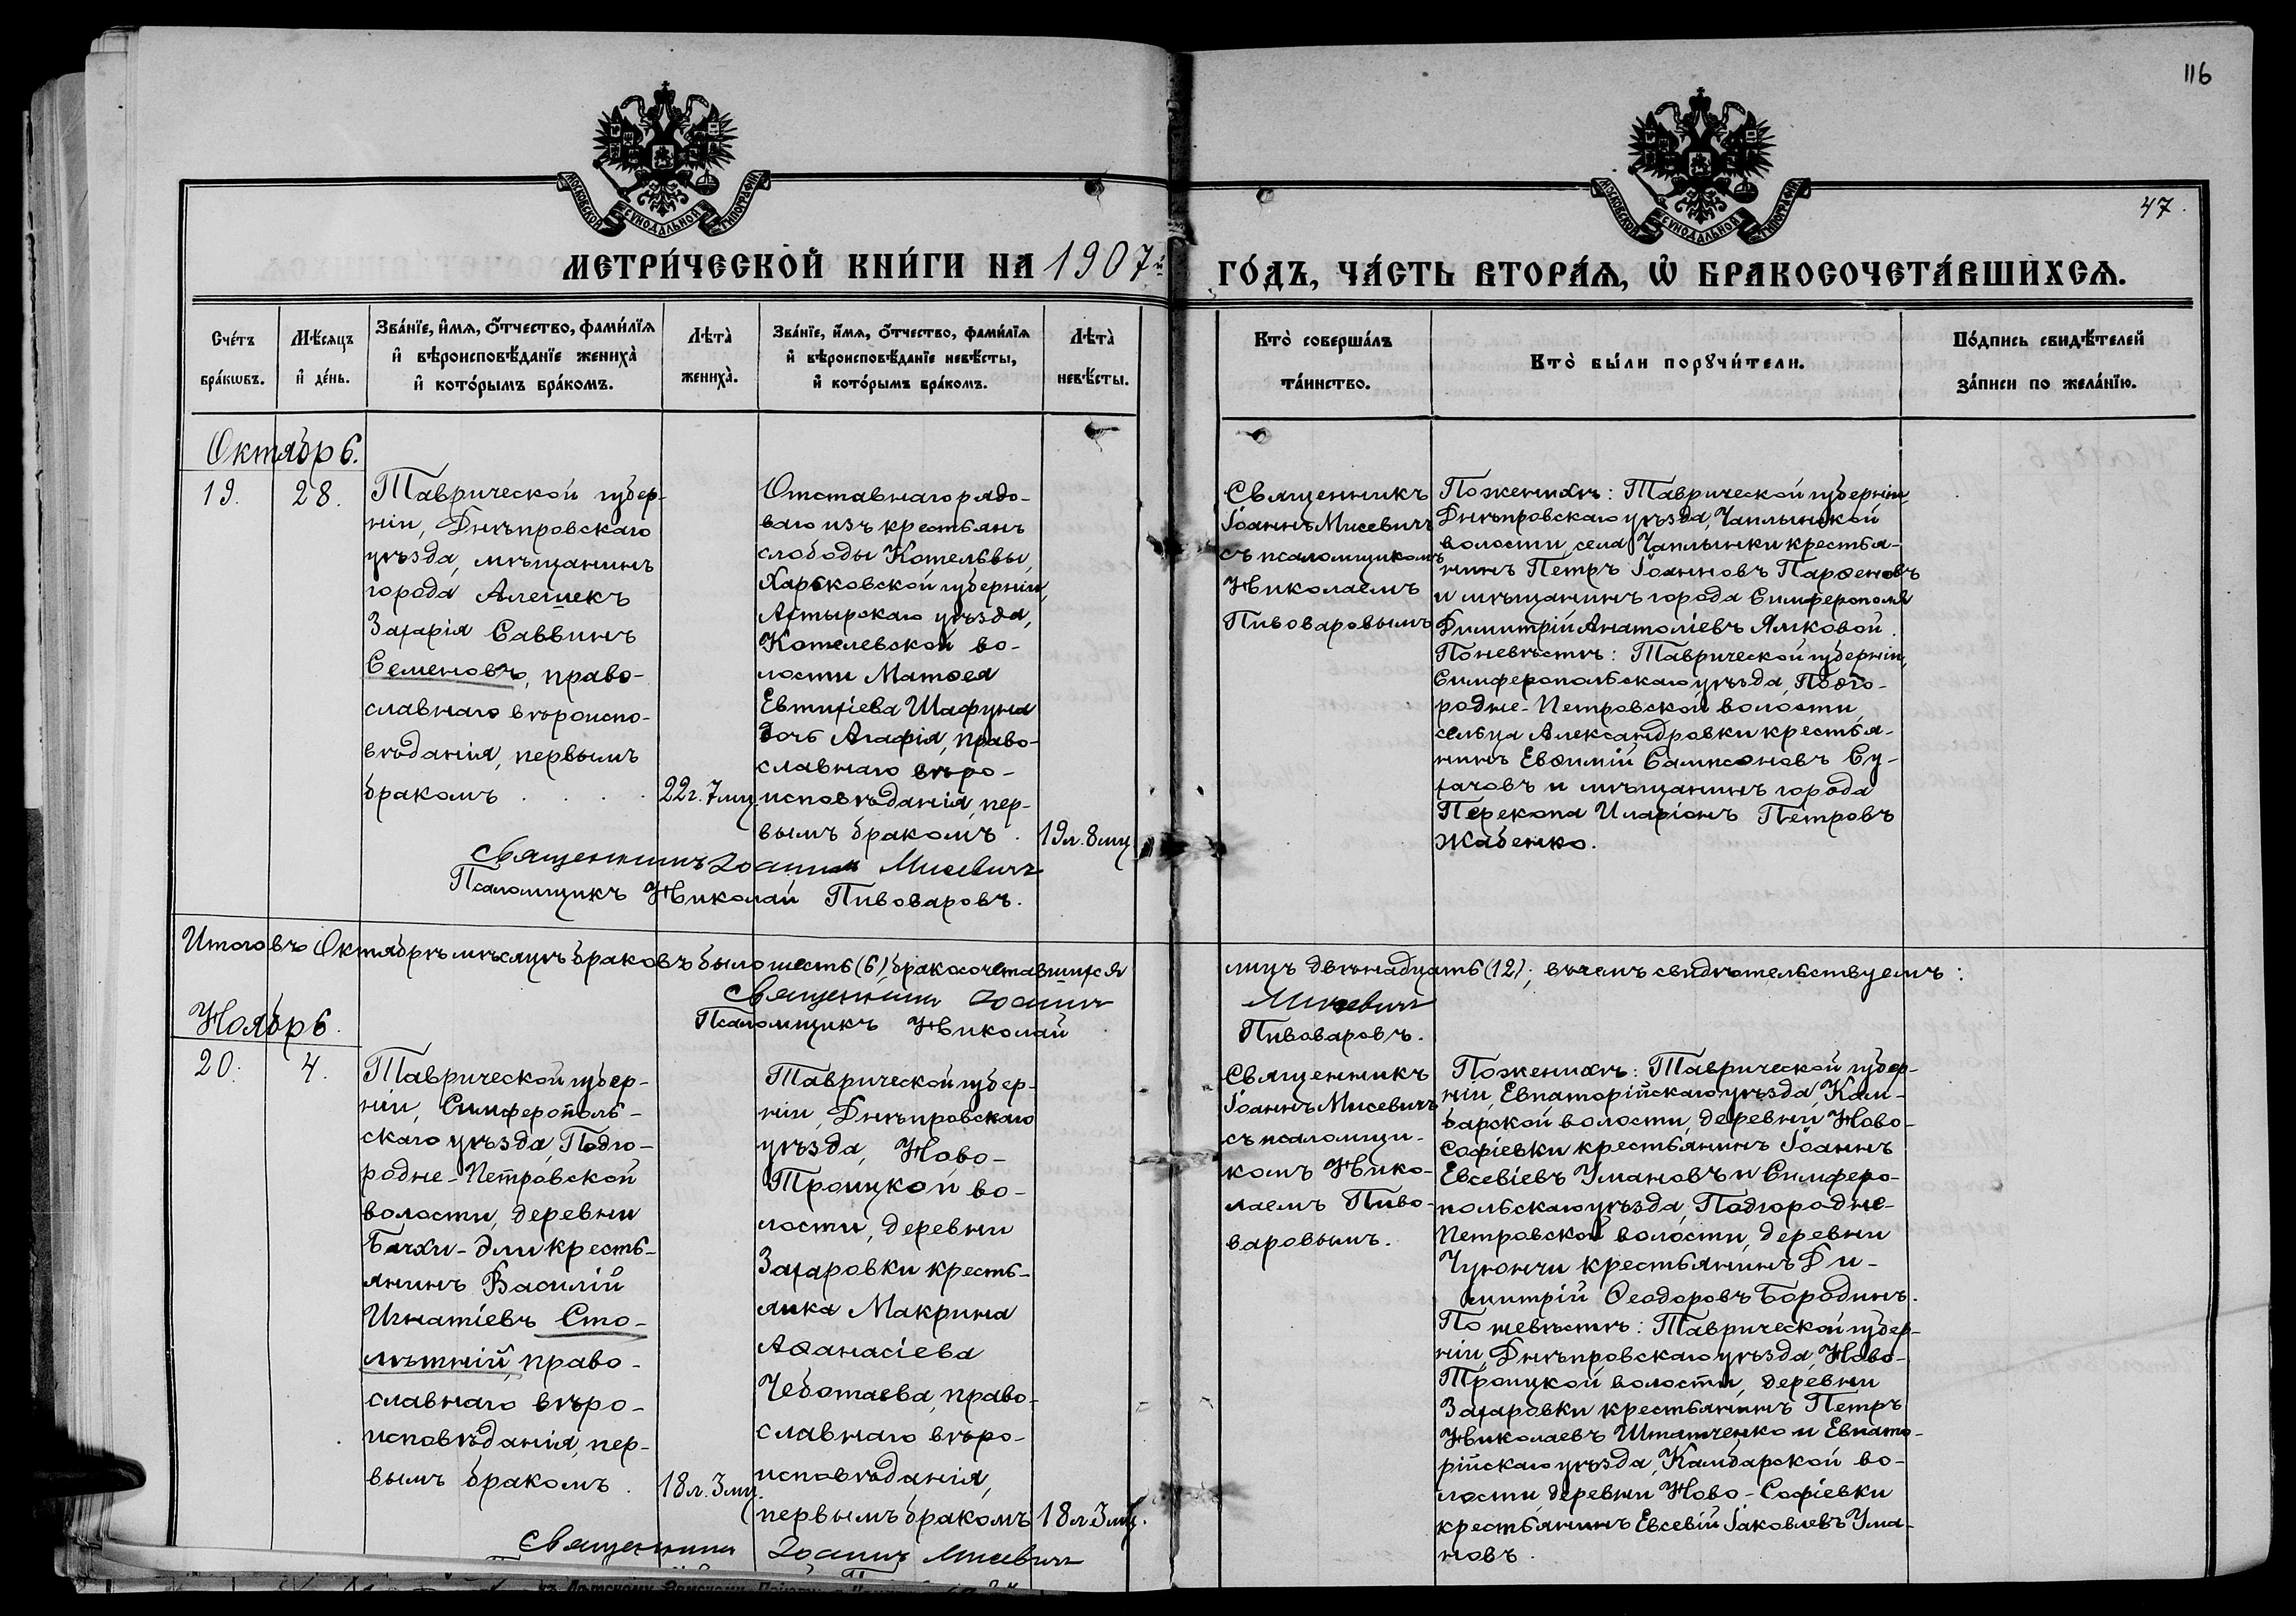 116
47.
МОСКОВСКОЙ СѴНОДАЛЬНОЙ ТИПОГРАФІИ
МОСКОВСКОЙ СѴНОДАЛЬНОЙ ТИПОГРАФІИ
МЕТРИ́ЧЕСКОЙ КНИ́ГИ НА 1907й ГО́ДЪ, ЧА́СТЬ ВТОРА́Я, Ѽ БРАКОСОЧЕТА́ВШИХСЯ.
Сче́тъ
бра́кѡвъ.
Мѣ́сяцъ
и҆ де́нь.
Зва́нїе, и҆́мя, ѻ҆́тчество, фами́лїя
и҆ вѣроисповѣ́данїе жениха̀
и҆ кото́рымъ бра́комъ.
Лѣта̀
жениха̀.
Зва́нїе, и҆́мя, ѻ҆́тчество, фами́лїя
и҆ вѣроисповѣ́данїе невѣ́сты,
и҆ кото́рымъ бра́комъ.
Лѣта̀
невѣ́сты.
Кто̀ соверша́лъ
та́инство.
Кто̀ бы́ли порꙋчи́тели.
По́дпись свидѣ́телей
за́писи по жела́нїю.
Октябрь.
19.
28.
Таврической губер-
ніи, Днѣпровскаго
уѣзда, мѣщанинъ
города Алешекъ
Захарія Саввинъ
Семеновъ, право-
славнаго вѣроиспо-
вѣданія, первымъ
бракомъ . . . .
22г. 7мц.
Отставнаго рядо-
ваго изъ крестьянъ
слободы Котельвы,
Харьковской губерніи,
Ахтырскаго уѣзда,
Котелевской во-
лости Матѳея
Евтихіева Шафуна
дочь Агафія, право-
славнаго вѣро-
исповѣданія, пер-
вымъ бракомъ .
19л. 8мц
Священникъ Іоаннъ Мисевичъ
Псаломщикъ Николай Пивоваровъ.
Священникъ
Іоаннъ Мисевичъ
съ псаломщикомъ
Николаемъ
Пивоваровымъ
По женихѣ: Таврической губерніи,
Днѣпровскаго уѣзда, Чаплынской
волости, села Чаплынки крестья-
нинъ Петръ Іоанновъ Парѳеновъ
и мѣщанинъ города Симферополя
Димитрій Анатоліевъ Ямковой.
По невѣстѣ: Таврической губерніи,
Симферопольскаго уѣзда, Подго-
родне-Петровской волости
сельца Александровки крестья-
нинъ Евѳимій Сампсоновъ Су-
хачовъ и мѣщанинъ города
Перекопа Иларіонъ Петровъ
Жабенко.
Итого въ Октябрѣ мѣсяцѣ браковъ было шесть (6), бракосочетавшихся лицъ двѣнадцать (12); въ чемъ свидѣтельствуемъ:
Священникъ Іоаннъ Мисевичъ
Псаломщикъ Николай Пивоваровъ.
Ноябрь.
20.
4.
Таврической губер-
ніи, Симферополь-
скаго уѣзда, Подго-
родне-Петровской
волости, деревни
крестъ-
янинъ Василій
Игнатіевъ Сто-
лѣтній, право-
славнаго вѣро-
исповѣданія, пер-
вымъ бракомъ .
18л. 3мц.
Таврической губер-
ніи, Днѣпровскаго
уѣзда, Ново-
Троицкой во-
лости, деревни
Захаровки кресть-
янка Макрина
Аѳанасіева
Чеботаева, право-
славнаго вѣро-
исповѣданія,
первымъ бракомъ
18л. 3мц.
Священникъ Іоаннъ Мисевичъ
Священникъ
Іоаннъ Мисевичъ
съ псаломщи-
комъ Нико-
лаемъ Пиво-
варовымъ.
По женихѣ: Таврической губер-
ніи, Евпаторійскаго уѣзда, Кам-
барской волости, деревни Ново-
Софіевки крестьянинъ Іоаннъ
Евсевіевъ Умановъ и Симферо-
польскаго уѣзда, Подгородне-
Петровской волости, деревни
крестьянинъ Ди-
митрій Ѳеодоровъ Бородинъ.
По невѣстѣ: Таврической губер-
ніи, Днѣпровскаго уѣзда, Ново-
Троицкой волости, деревни
Захаровки крестьянинъ Петръ
Николаевъ Штатченко и Евпато-
рійскаго уѣзда, Камбарской во-
лости, деревни Ново-Софіевки
крестьянинъ Евсевій Іаковлевъ Ума-
новъ.